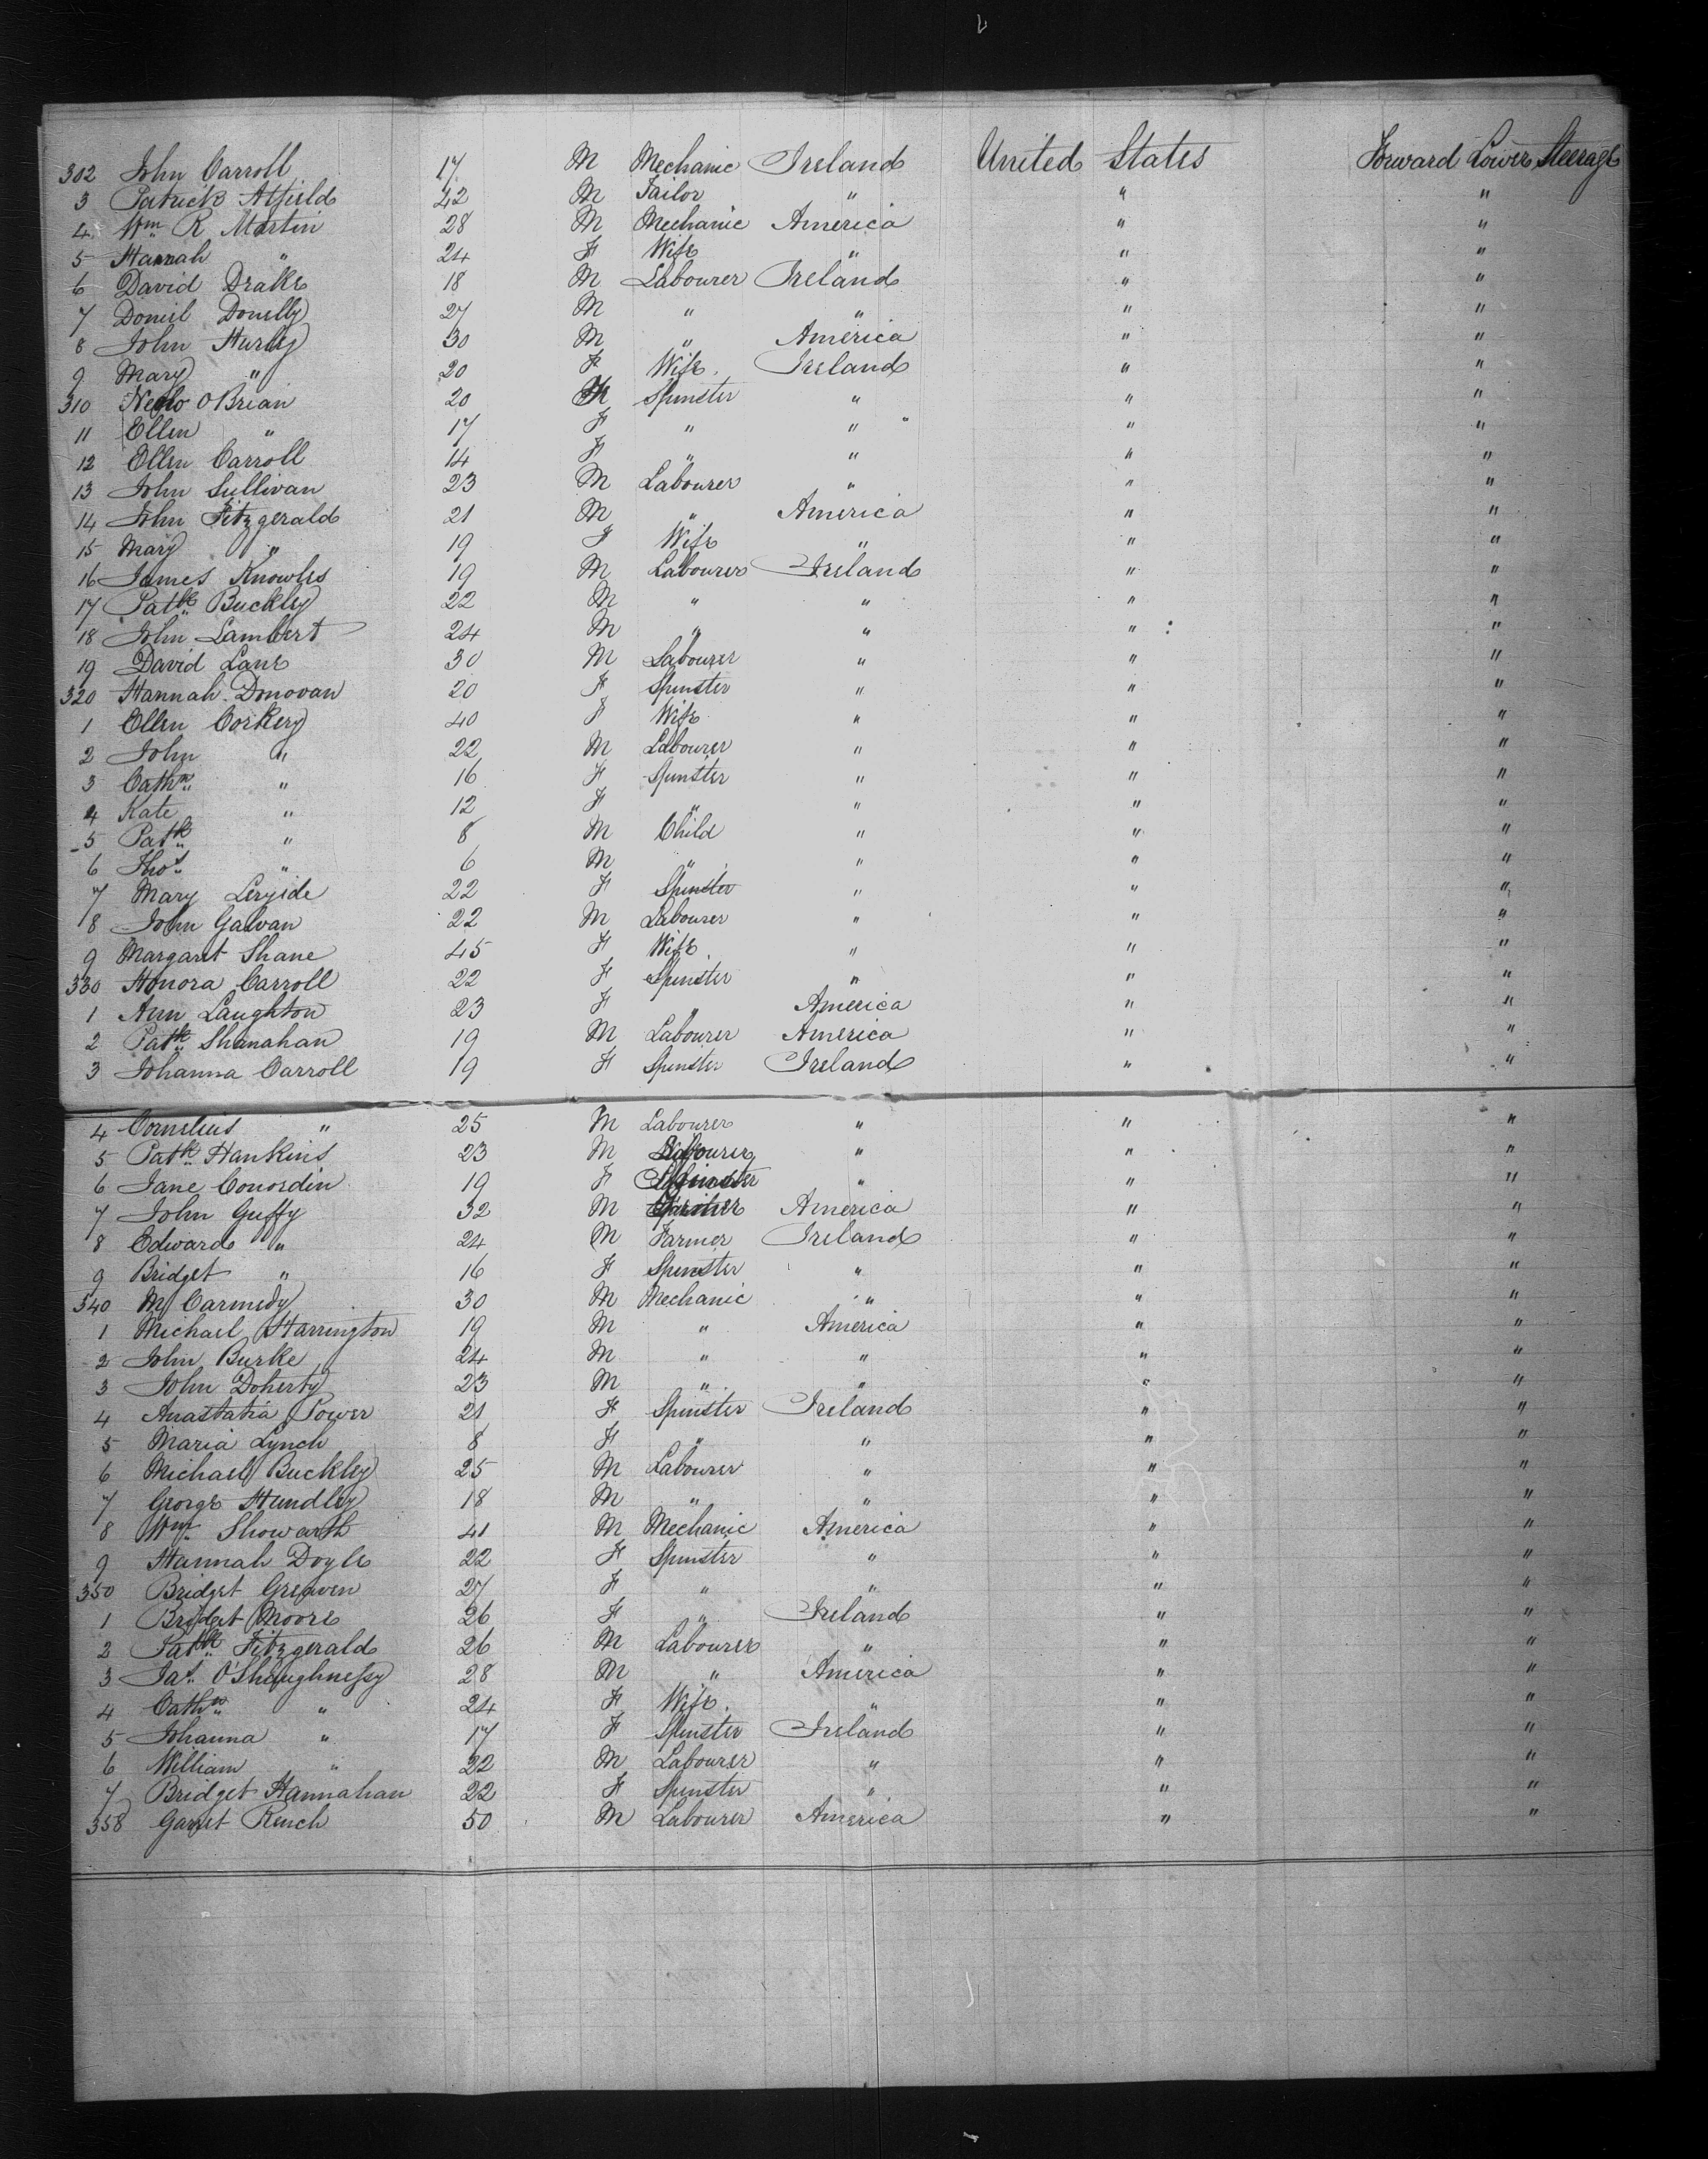 302 John Carroll 17 M Mechanic Ireland United States Forward Lower Steerage
3 Patrick Atfield 42 M Tailor " " "
4 Wm R Martin 28 M Mechanic America " "
5 Hannah " 24 F Wife " " "
6 David Drake 18 M Labourer Ireland " "
7 Daniel Donelly 27 M " " " "
8 John Hurley 30 M " America " "
9 Mary " 20 F Wife Ireland " "
310 O'Brian 20 Spinster " " "
11 Ellen " 17 F " " " "
12 Ellen Carroll 14 F " " " "
13 John Sullivan 23 M Labourer " " "
14 John Fitzgerald 21 M " America " "
15 Mary " 19 F Wife " " "
16 James Knowles 19 M Labourer Ireland " "
17 Patk Buckley 22 M " " " "
18 John Lambert 24 M " " " "
19 David Lane 30 M Labourer " " "
320 Hannah Donovan 20 F Spinster " " "
1 Ellen Corkery 40 F Wife " " "
2 John " 22 M Labourer " " "
3 Cathn " 16 F Spinster " " "
4 Kate " 12 F " " " "
5 Patk " 8 M Child " " "
6 Thos " 6 M " " " "
7 Mary 22 F Spinster " " "
8 John Galvan 22 M Labourer " " "
9 Margaret Shane 45 F Wife " " "
330 Honora Carroll 22 F Spinster " " "
1 Ann Laughton 23 F " America " "
2 Patk Shanahan 19 M Labourer America " "
3 Johanna Carroll 19 F Spinster Ireland " "
4 Cornelius " 25 M Labourer " " "
5 Patk Hankins 23 M Labourer " " "
6 Jane 19 F Spinster " " "
7 John Guffy 32 M America " "
8 Edward " 24 M Farmer Ireland " "
9 Bridget " 16 F Spinster " " "
340 M Carmedy 30 M Mechanic " " "
1 Michael Harrington 19 M " America " "
2 John Burke 24 M " " " "
3 John Doherty 23 M " " " "
4 Anastatia Power 21 F Spinster Ireland " "
5 Maria Lynch 8 F " " " "
6 Michael Buckley 25 M Labourer " " "
7 George Hundley 18 M " " " "
8 Wm Showarth 41 M Mechanic America " "
9 Hannah Doyle 22 F Spinster " " "
350 Bridget Greaven 27 F " " " "
1 Bridget Moore 26 F " Ireland " "
2 Patk Fitzgerald 26 M Labourer " " "
3 Jas O'Shaughnessy 28 M " America " "
4 Cathn " 24 F Wife " " "
5 Johanna " 17 F Spinster Ireland " "
6 William " 22 M Labourer " " "
7 Bridget Hannahan 22 F Spinster " " "
358 Garret Rench 50 M Labourer America " "